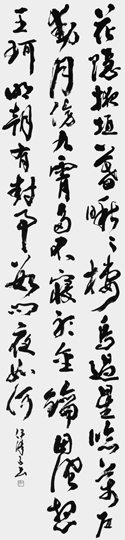 花隱掖垣暮啾々棲鳥過星臨萬戶
動月傍九霄多不寢聽金鑰因風想
玉珂明朝有封事數問夜如何